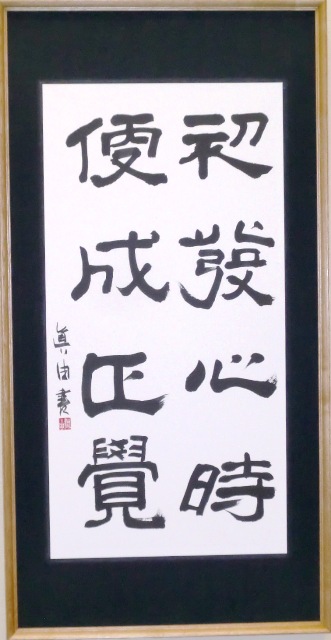 初發心時
便成正覺
真由書